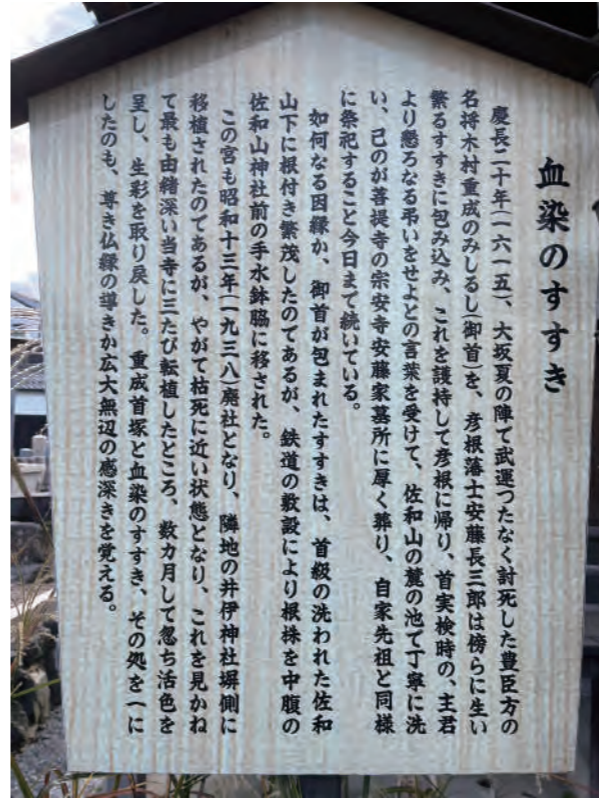 血染のすすき
慶長二十年(一六一五)、大坂夏の陣で武運つたなく討死した豊臣方の
名将木村重成のみしるし(御首)を、彦根藩士安藤長三郎は傍らに生い
繁るすすきに包み込み、これを護持して彦根に帰り、首実検時の、主君
より懇ろなる弔いをせよとの言葉を受けて、佐和山の麓の池で丁寧に洗
い、己のが菩提寺の宗安寺安藤家墓所に厚く葬り、自家先祖と同様
に祭祀すること今日まで続いている。
如何なる因縁か、御首が包まれたすすきは、首級の洗われた佐和
山下に根付き繁茂したのであるが、鉄道の敷設により根株を中腹の
佐和山神社前の手水鉢脇に移された。
この宮も昭和十三年(一九三八)廃社となり、隣地の井伊神社塀側に
移植されたのであるが、やがて枯死に近い状態となり、これを見かね
て最も由緒深い当寺に三たび転植したところ、数カ月して忽ち活色を
呈し、生彩を取り戻した。重成首塚と血染のすすき、その処を一に
したのも、尊き仏縁の導きか広大無辺の感深きを覚える。